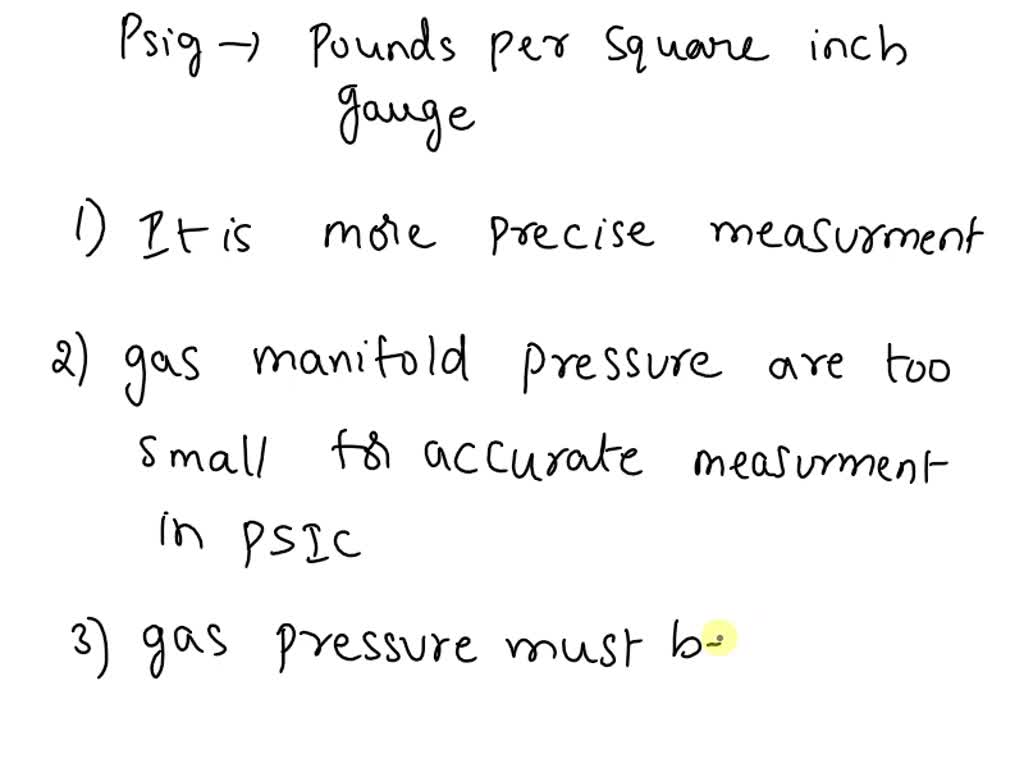 Psig → Pounds per square inch
gauge
1) It is more precise measurment
2) gas manifold pressure are too
small for accurate measurment
in PSIC
3) gas pressure must b